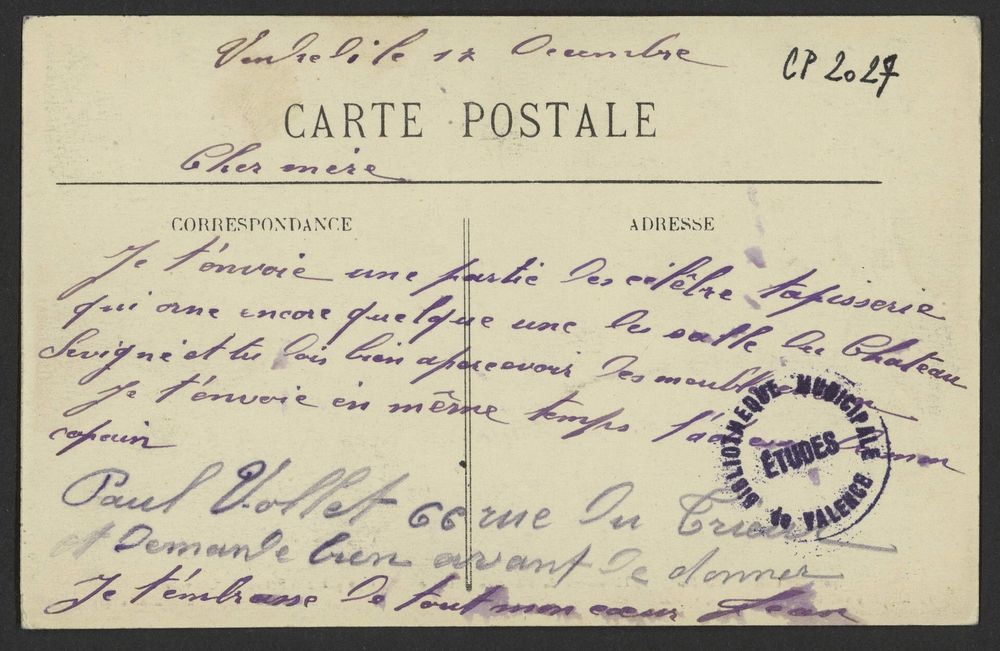 Vendredi le 12 Decembre
CP 2027
CARTE POSTALE
Cher mère
CORRESPONDANCE
ADRESSE
Je t'envoie une partie des célêbre tapisserie
qui orne encore quelque une des salle du Chateau
Sevigné et tu dois bien apercevoir des meubles
Je t'envoie en même temps l'adresse de mon
copain
BIBLIOTHEQUE MUNICIPALE
ÉTUDES
DE VALENCE
Paul Vollet 66 rue du
et Demande bien avant de donner
Je t'embrasse de tout mon cœur Jean